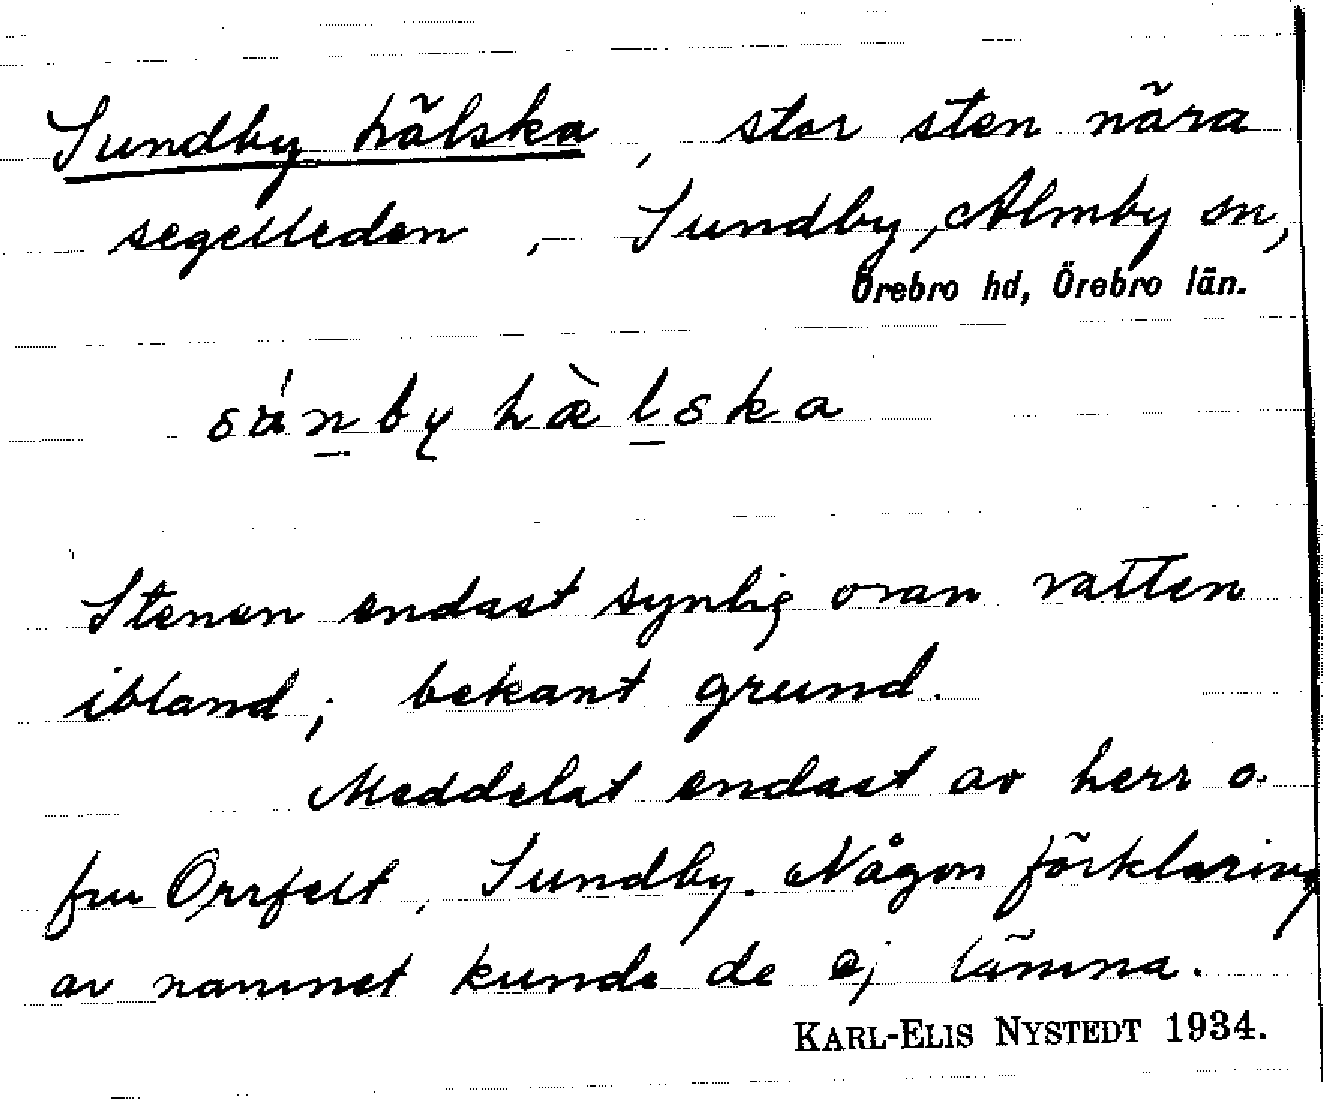 Sundby hälska, stor sten nära
segelleden, Sundby, Almby sn,
Örebro hd, Örebro län.
sánby hæ̀lska
Stenen endast synlig ovan vatten
ibland; bekant grund.
Meddelat endast av herr o.
fru Orrfelt, Sundby. Någon förklaring
av namnet kunde de ej lämna.
KARL-ELIS NYSTEDT 1934.